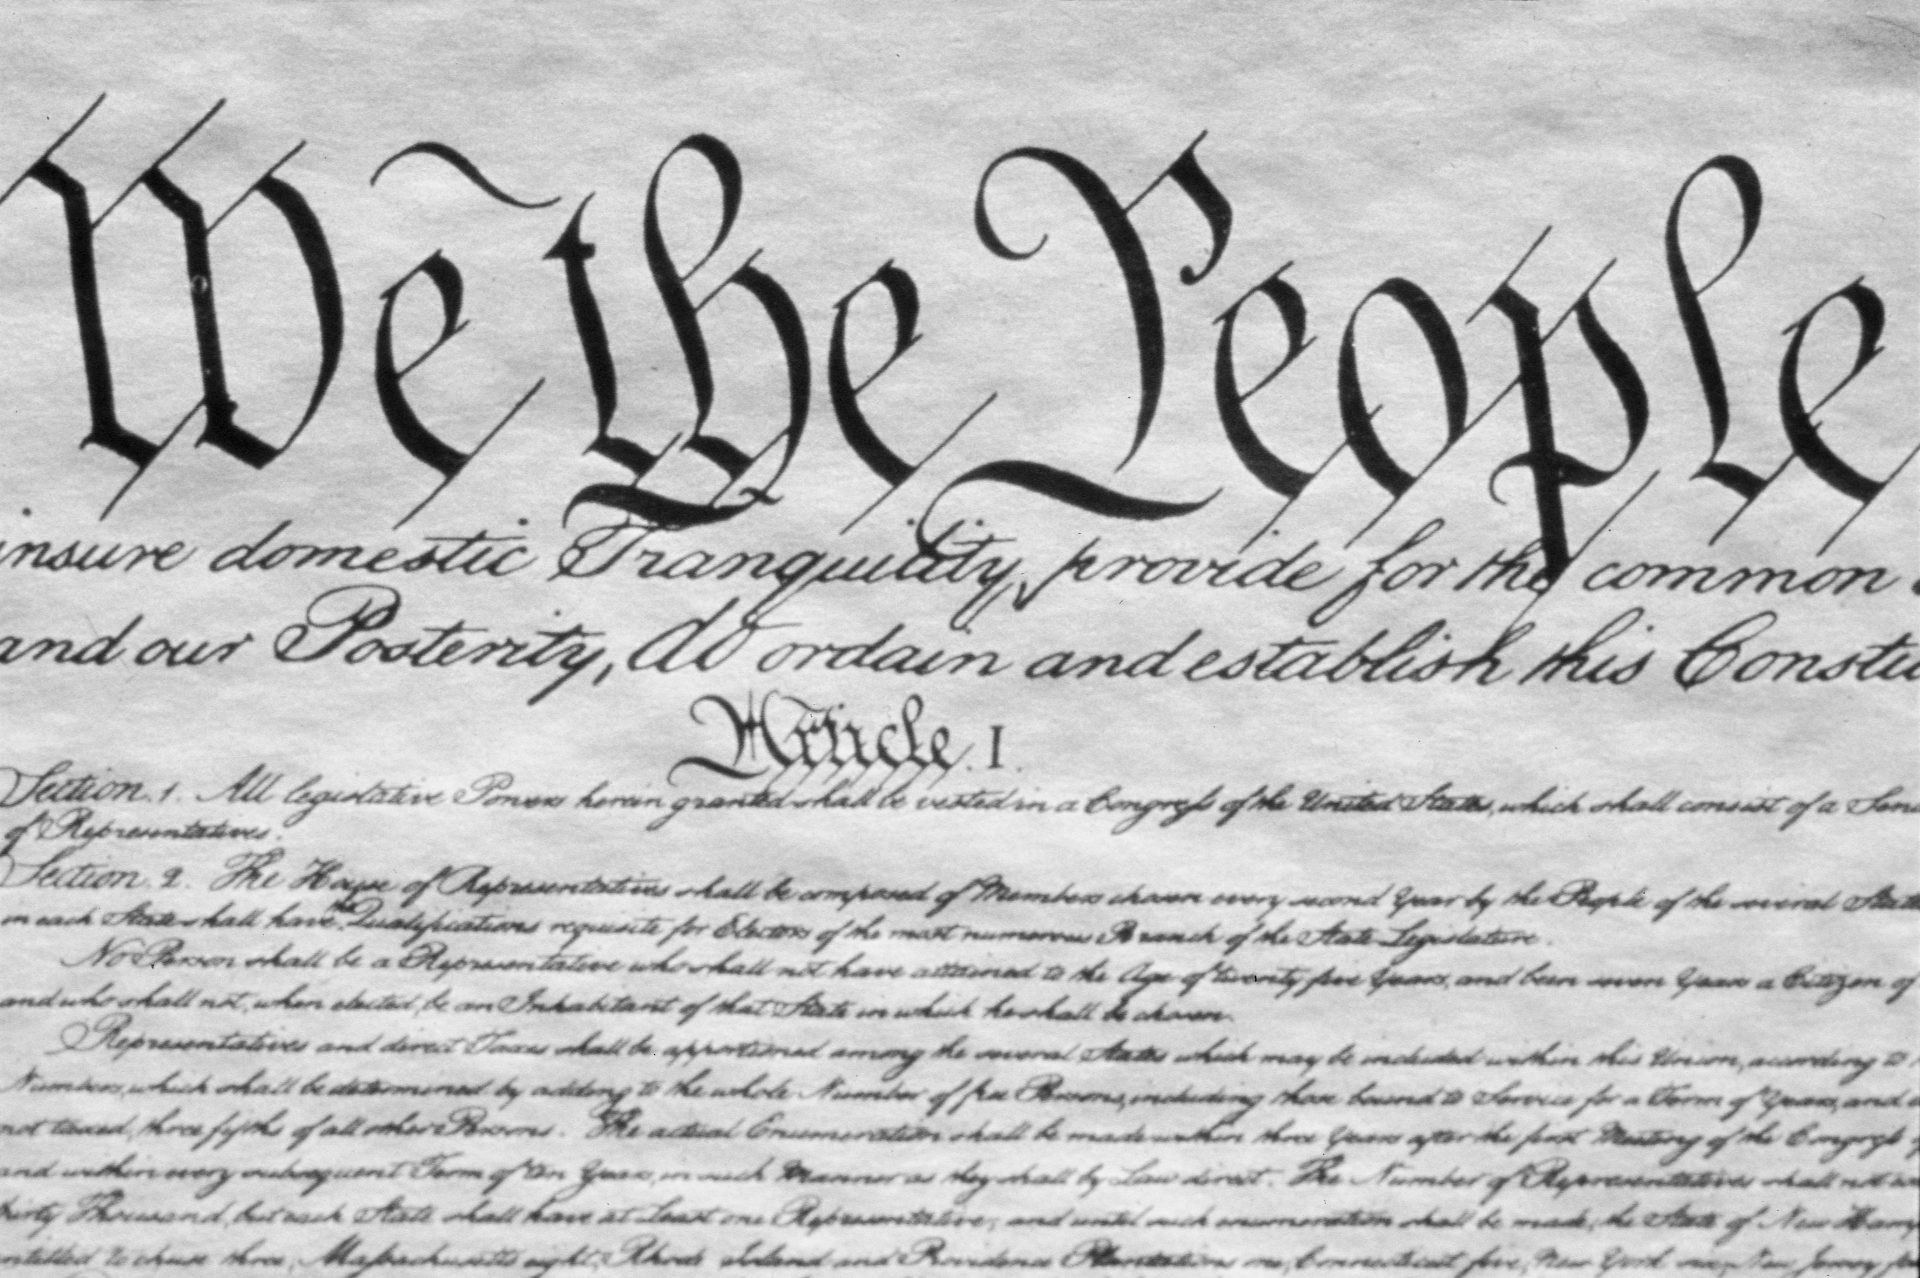 We the People
insure domestic Tranquility, provide for the common
and our Posterity, do ordain and establish this Constitu
Article. I.
Section. 1. All legislative Powers herein granted shall be vested in a Congress of the United States, which shall consist of a Sena
of Representatives.
Section. 2. The House of Representatives shall be composed of Members chosen every second Year by the People of the several States
in each State shall have the Qualifications requisite for Electors of the most numerous Branch of the State Legislature.
No Person shall be a Representative who shall not have attained to the Age of twenty five Years, and been seven Years a Citizen of
and who shall not, when elected, be an Inhabitant of that State in which he shall be chosen.
Representatives and direct Taxes shall be apportioned among the several States which may be included within this Union, according to
Numbers, which shall be determined by adding to the whole Number of free Persons, including those bound to Service for a Term of Years, and
not taxed, three fifths of all other Persons. The actual Enumeration shall be made within three Years after the first Meeting of the Congress
and within every subsequent Term of ten Years, in such Manner as they shall by Law direct. The Number of Representatives shall not
thirty Thousand, but each State shall have at Least one Representative; and until such enumeration shall be made, the State of New Hamp
entitled to chuse three, Massachusetts eight, Rhode Island and Providence Plantations one, Connecticut five, New York six, New Jersey